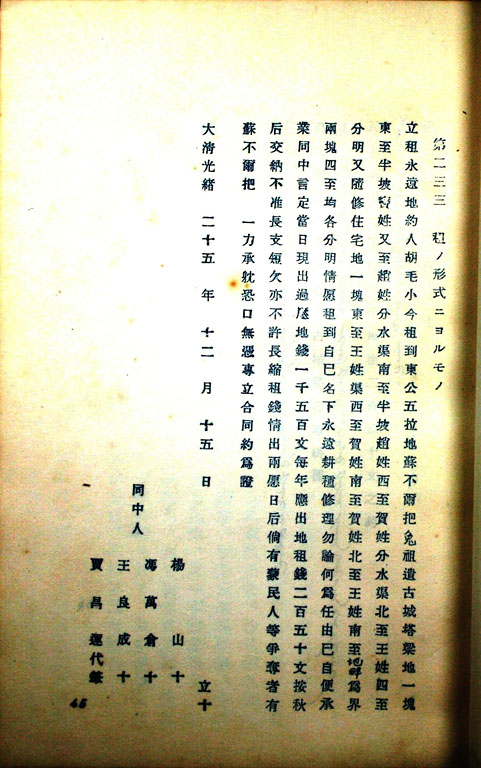 第二三三 租ノ形式ニヨルモノ
立租永遠地約人胡毛小今租到東公五拉地蘇不爾把兔祖遺古城塔梁地一塊
東至半坡賈姓又至趙姓分水渠南至半坡趙姓西至賀姓分水渠北至王姓四至
分明又隨修住宅地一塊東至王姓渠西至賀姓南至賀姓北至王姓南至地畔爲界
兩塊四至均各分明情愿租到自已名下永遠耕種修理勿論何爲任由已自便承
業同中言定當日現出過 地錢一千五百文每年應出地租錢二百五十文按秋
后交納不准長支短欠亦不許長縮租錢情出兩愿日后倘有蒙民人等爭奪者有
蘇不爾把 一力承躭恐口無憑專立合同約爲證
大清光緒 二十五 年 十二 月 十五 日 立十
同中人
楊 山 十
馮萬倉十
王良成十
賈昌運代筆
45